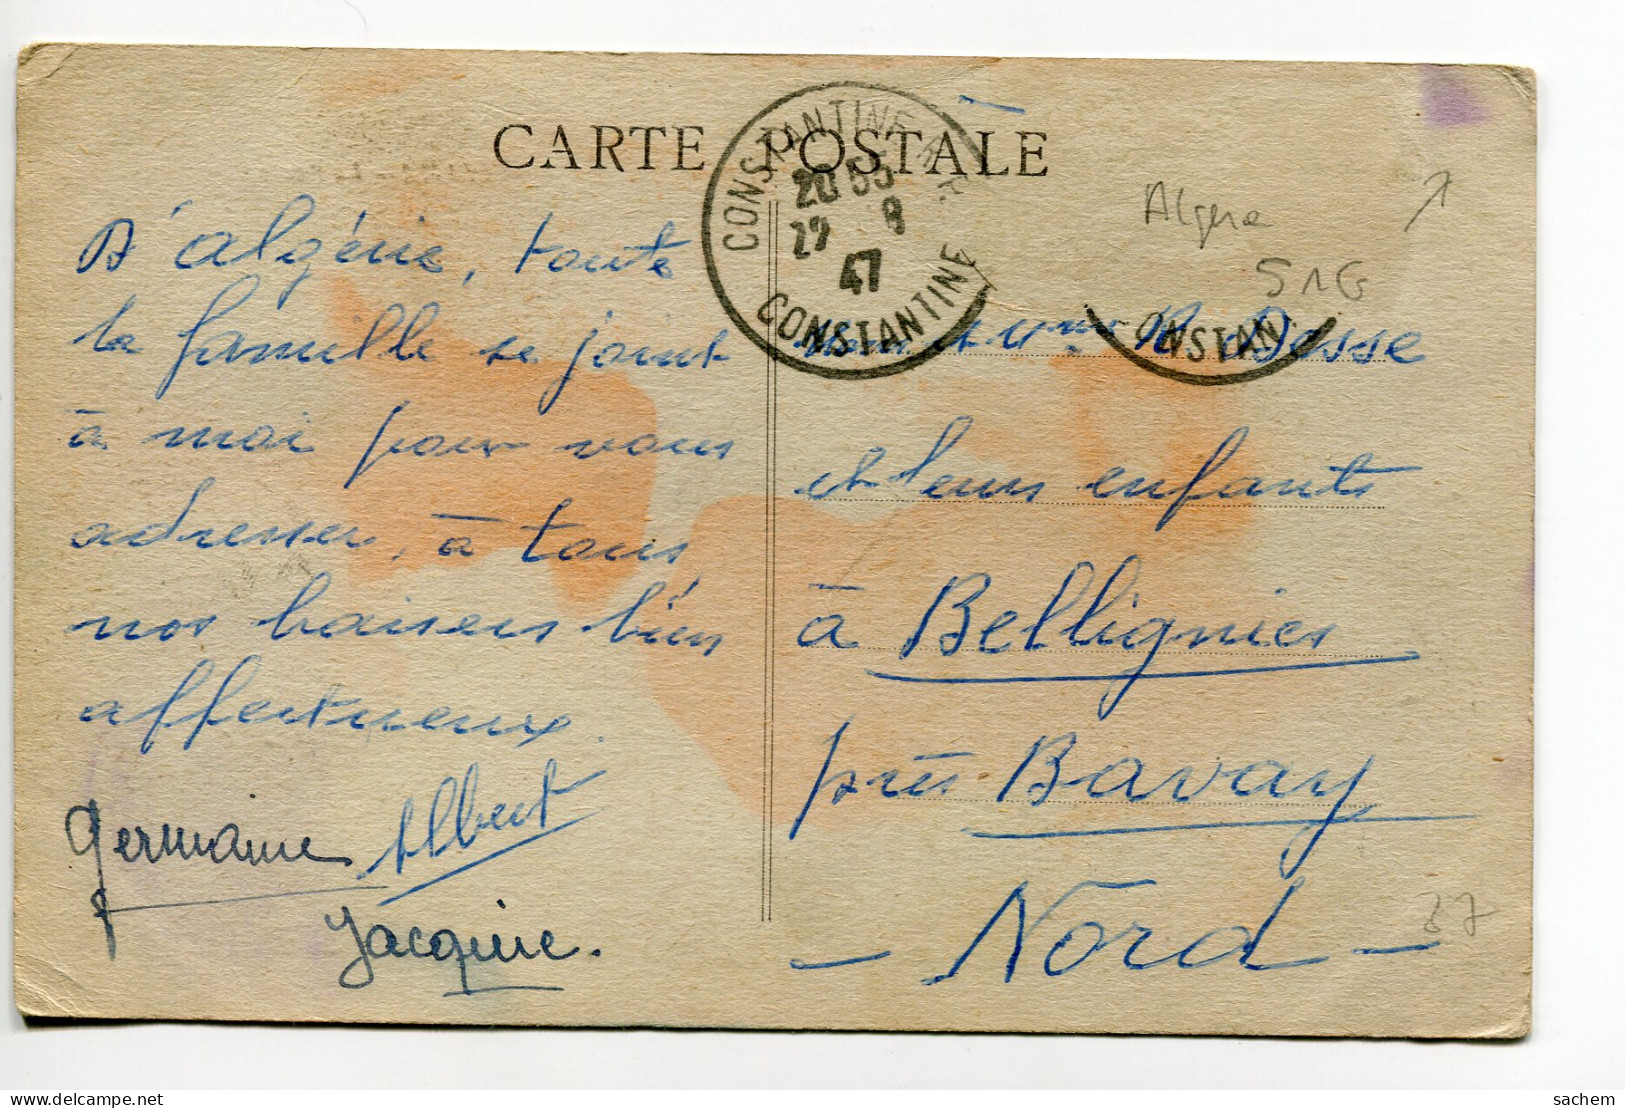 CARTE POSTALE
CONSTANTINE R.P.
20 55
22 8
47
CONSTANTINE
ONSTAN
Algerie
D'algérie, toute
la famille se joint
à moi pour vous
adresser, à tous
nos baisers bien
affectueux.
Albert
Germaine
Jacquie.
et Mme
Desse
et leurs enfants
à Bellignies
près Bavay
- Nord -
37
delcampe.net
sachem